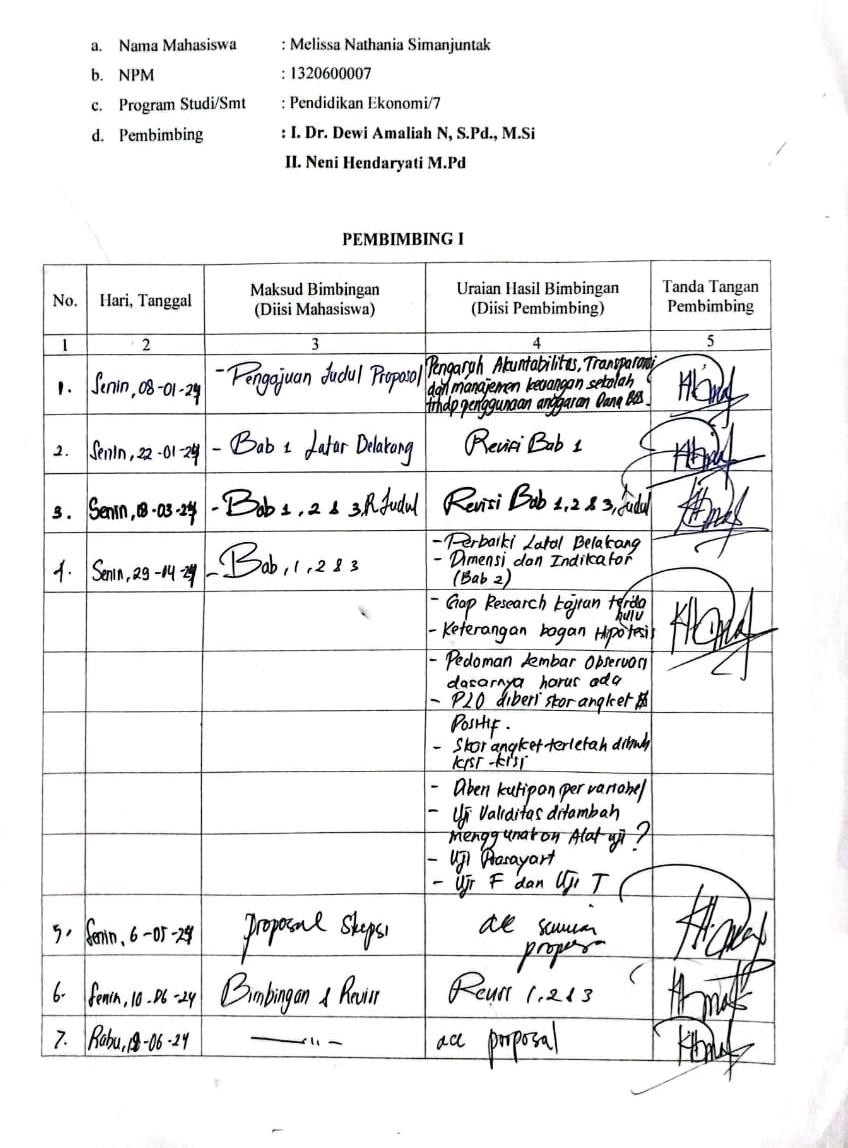 a. Nama Mahasiswa : Melissa Nathania Simanjuntak
b. NPM : 1320600007
c. Program Studi/Smt : Pendidikan Ekonomi/7
d. Pembimbing : I. Dr. Dewi Amaliah N, S.Pd., M.Si
II. Neni Hendaryati M.Pd
PEMBIMBING I
No. Hari, Tanggal Maksud Bimbingan Uraian Hasil Bimbingan Tanda Tangan
(Diisi Mahasiswa) (Diisi Pembimbing) Pembimbing
1 2 3 4 5
1. Senin, 08-01-24 - Pengajuan Judul Proposal Pengaruh Akuntabilitas, Transparansi
dan manajemen keuangan sekolah
trhdp penggunaan anggaran Dana
2. Senin, 22-01-24 - Bab 1 Latar Belakang Revisi Bab 1
3. Senin, 18-03-24 - Bab 1, 2 & 3, R Judul Revisi Bab 1, 2 & 3, Judul
4. Senin, 29-04-24 - Bab, 1, 2 & 3 - Perbaiki Latar Belakang
- Dimensi dan Indikator
(Bab 2)
- Gap Research kajian terda
hulu
- Keterangan bagan Hipotesis
- Pedoman lembar Observasi
dasarnya harus ada
- P20 diberi skor angket
Positif.
- Skor angket
kisi-kisi
- Diberi kutipan per variabel
- Uji Validitas ditambah
Menggunakan Alat uji ?
- Uji Prasayart
- Uji F dan Uji T
5. Senin, 6-05-24 Proposal Skripsi
6. Senin, 10-06-24 Bimbingan & Revisi Revisi 1, 2 & 3
7. Rabu, 18-06-24 —— " — acc proposal